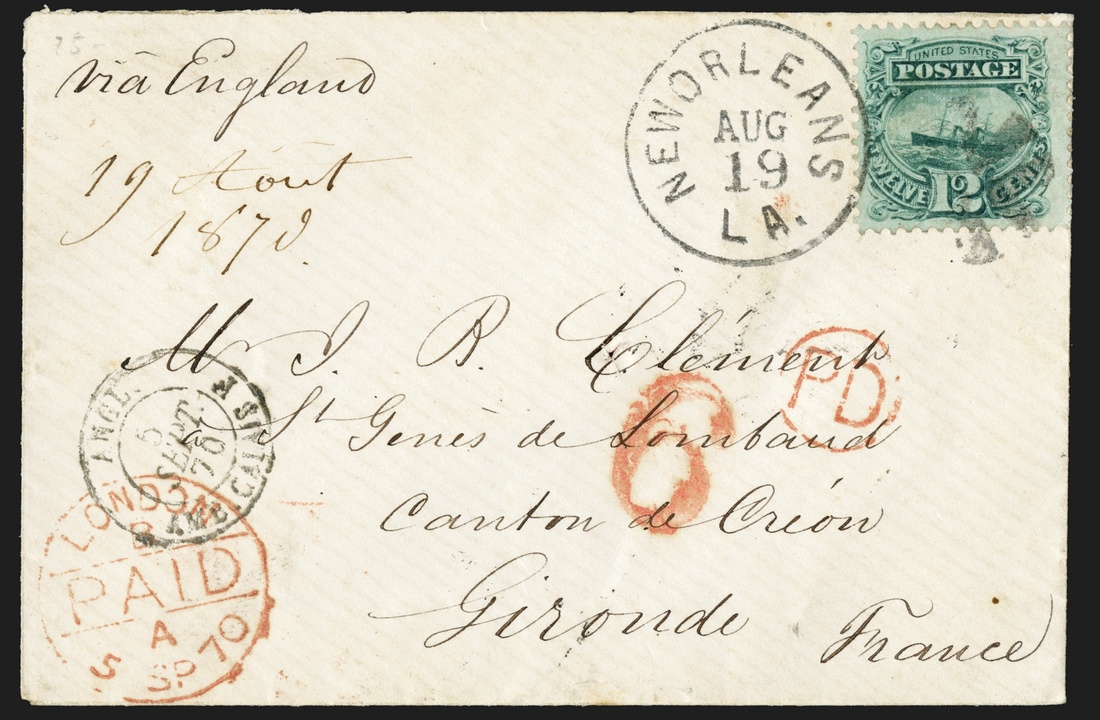 75-
via England
19 Aout
1870
NEW ORLEANS
AUG
19
LA.
UNITED STATES
POSTAGE
TWELVE 12 CENTS
Mr J. B. Clément
St Genès de Lombaud
Canton de Créon
Gironde
France
PD
6
ANGL.
5
SEPT.
70
AMB. CALAIS
LONDON
B
PAID
A
5 SP 70